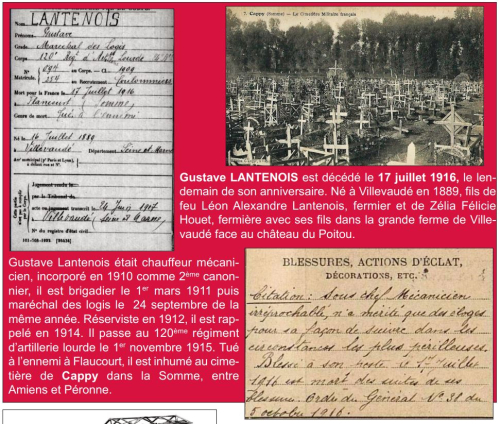 Nom LANTENOIS
Prénoms Gustave
Grade Maréchal des logis
Corps 120e Régt d'Artie Lourde
N° 094 au Corps. — Cl. 1909
Matricule. 284 au Recrutement Coulommiers
Mort pour la France le 17 Juillet 1916
à Flaucourt (Somme)
Genre de mort Tué à l'ennemi
Né le 16 Juillet 1889
à Villevaudé Département Seine et Marne
Arrt municipal (pr Paris et Lyon),
à défaut rue et N°.
Jugement rendu le
par le Tribunal de
acte ou jugement transcrit le 24 Juin 1917
à Villevaudé (Seine et Marne)
N° du registre d'état civil
7. Cappy (Somme) - Le Cimetière Militaire français
Gustave LANTENOIS est décédé le 17 juillet 1916, le len-
demain de son anniversaire. Né à Villevaudé en 1889, fils de
feu Léon Alexandre Lantenois, fermier et de Zélia Félicie
Houet, fermière avec ses fils dans la grande ferme de Ville-
vaudé face au château du Poitou.
Gustave Lantenois était chauffeur mécani-
cien, incorporé en 1910 comme 2ème canon-
nier, il est brigadier le 1er mars 1911 puis
maréchal des logis le 24 septembre de la
même année. Réserviste en 1912, il est rap-
pelé en 1914. Il passe au 120ème régiment
d'artillerie lourde le 1er novembre 1915. Tué
à l'ennemi à Flaucourt, il est inhumé au cime-
tière de Cappy dans la Somme, entre
Amiens et Péronne.
BLESSURES, ACTIONS D'ÉCLAT,
DÉCORATIONS, ETC.
Citation: Sous chef Mécanicien
irréprochable, n'a mérité que des éloges
pour sa façon de suivre dans les
circonstances les plus périlleuses.
Blessé à son poste le 1er Juillet
1916 est mort des suites de ses
blessures. Ordre du Général N° 38 du
5 octobre 1916.